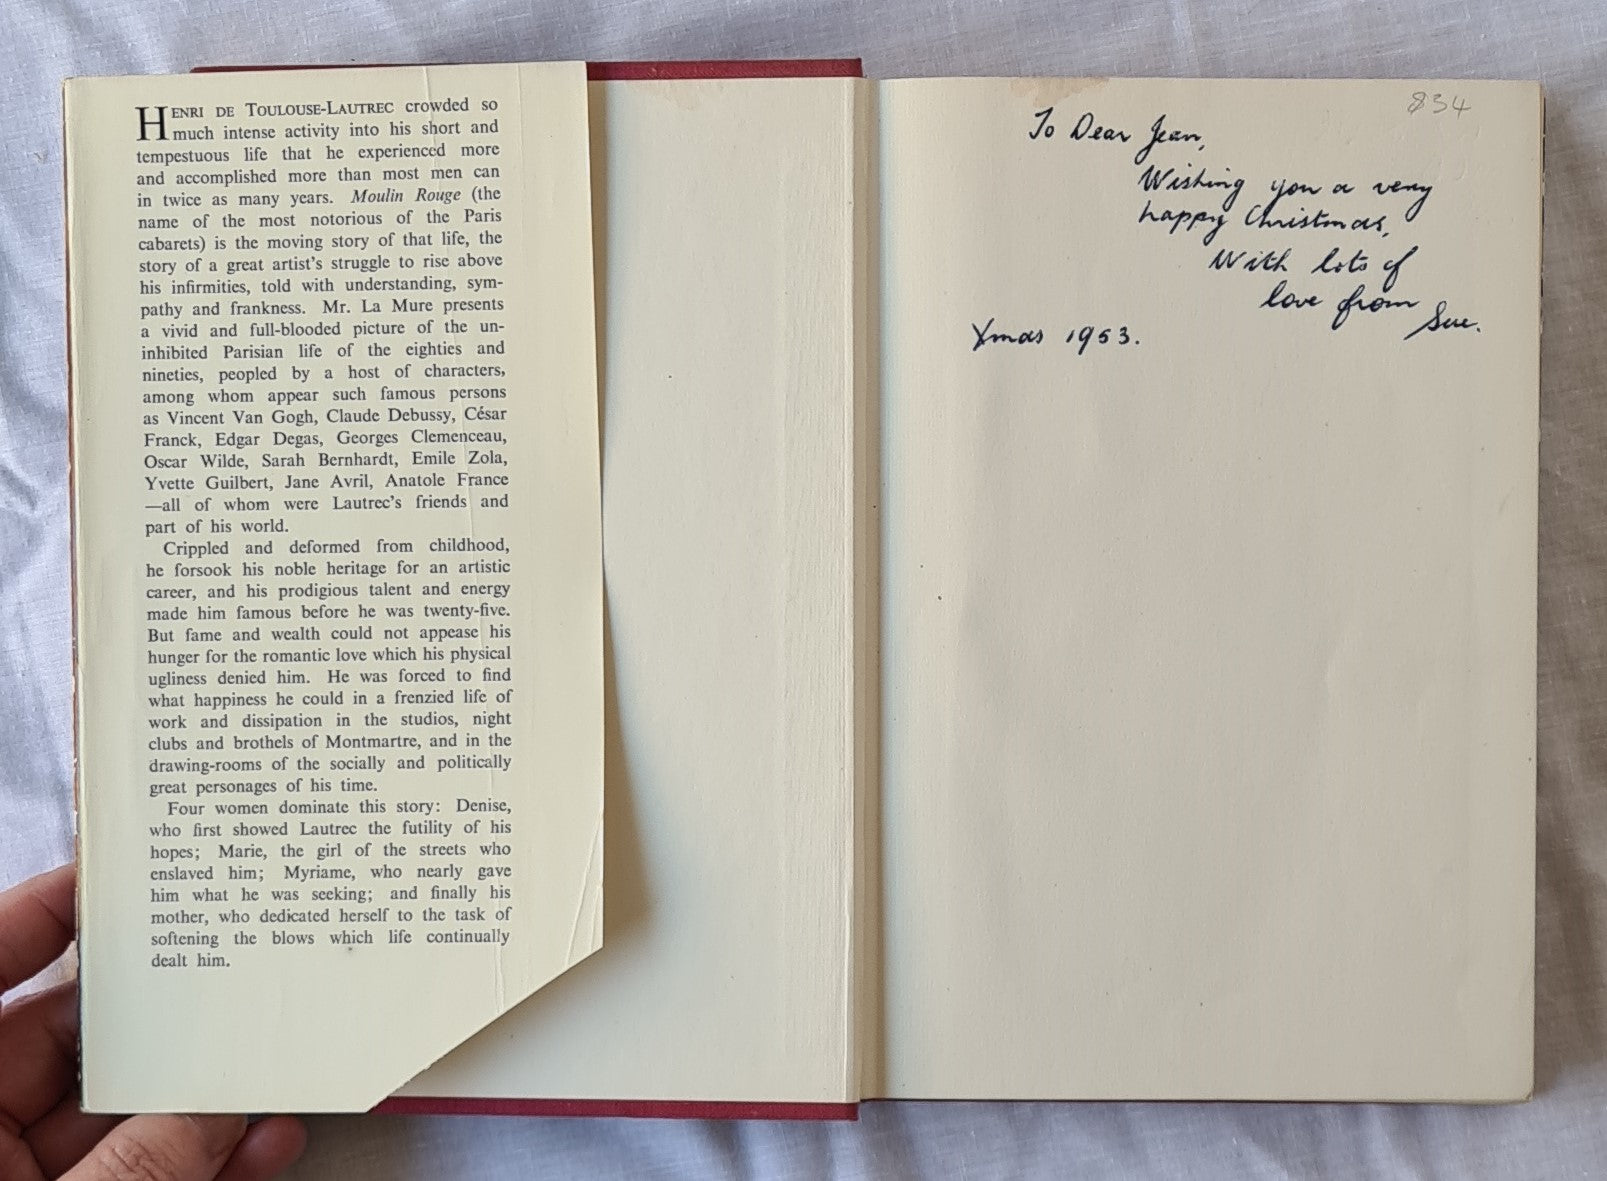 HENRI DE TOULOUSE-LAUTREC crowded so
much intense activity into his short and
tempestuous life that he experienced more
and accomplished more than most men can
in twice as many years. Moulin Rouge (the
name of the most notorious of the Paris
cabarets) is the moving story of that life, the
story of a great artist's struggle to rise above
his infirmities, told with understanding, sym-
pathy and frankness. Mr. La Mure presents
a vivid and full-blooded picture of the un-
inhibited Parisian life of the eighties and
nineties, peopled by a host of characters,
among whom appear such famous persons
as Vincent Van Gogh, Claude Debussy, César
Franck, Edgar Degas, Georges Clemenceau,
Oscar Wilde, Sarah Bernhardt, Emile Zola,
Yvette Guilbert, Jane Avril, Anatole France
—all of whom were Lautrec's friends and
part of his world.
Crippled and deformed from childhood,
he forsook his noble heritage for an artistic
career, and his prodigious talent and energy
made him famous before he was twenty-five.
But fame and wealth could not appease his
hunger for the romantic love which his physical
ugliness denied him. He was forced to find
what happiness he could in a frenzied life of
work and dissipation in the studios, night
clubs and brothels of Montmartre, and in the
drawing-rooms of the socially and politically
great personages of his time.
Four women dominate this story: Denise,
who first showed Lautrec the futility of his
hopes; Marie, the girl of the streets who
enslaved him; Myriame, who nearly gave
him what he was seeking; and finally his
mother, who dedicated herself to the task of
softening the blows which life continually
dealt him.
834
To Dear Jean,
Wishing you a very
happy Christmas,
With lots of
love from
Sue.
Xmas 1953.